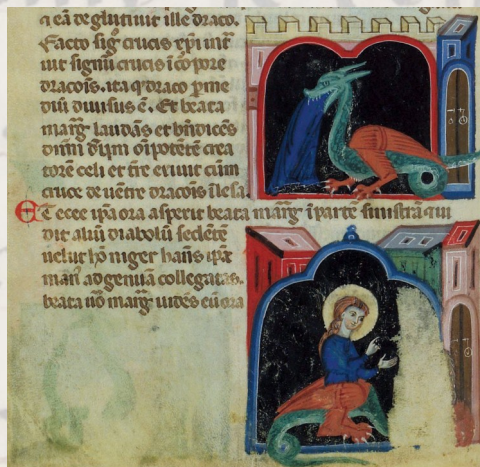 ⁊ eā deglutiuit ille draco.
Facto sig͂ crucis xp̄i inue
uit signū crucis ī corpore
draconis. ita q̄ draco ꝑ me
diū diuisus ē. Et beata
marg͂ laudās et bn̄dicēs
dn̄m om̄ipotētē crea
torē celi et tr̄e exiuit cum
cruce de uētre draconis ilesa.
Et ecce ip̄a ora asperit beata marg͂ ī parte sinistrā
dit aliū diabolū sedētē
uelut hō niger hn̄s
man᷒ ad genua collegatas.
beata u͂o marg͂ uidēs eū ora